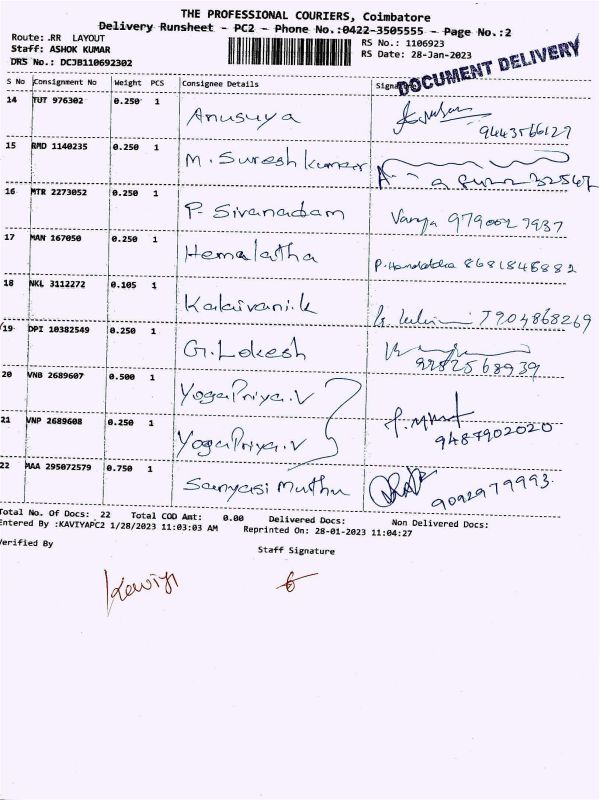 THE PROFESSIONAL COURIERS, Coimbatore
Delivery Runsheet - PC2 - Phone No.:0422-3505555 - Page No.:2
Route: .RR LAYOUT
RS No.: 1106923
Staff: ASHOK KUMAR
RS Date: 28-Jan-2023
DRS No.: DCJB110692302
DOCUMENT DELIVERY
S No Consignment No Weight PCS Consignee Details Signa
14 TUT 976302 0.250 1 Anusuya 9443566127
15 RMD 1140235 0.250 1 M. Sureshkumar 32547
16 MTR 2273052 0.250 1 P. Sivanadam Vanya 9790027937
17 MAN 167050 0.250 1 Hemalatha P. Hemalatha 8681848882
18 NKL 3112272 0.105 1 Kalaivani.k 7904868269
19 DPI 10382549 0.250 1 G. Lokesh 9282568939
20 VNB 2689607 0.500 1 Yoga Priya.V
21 VNP 2689608 0.250 1 Yoga Priya.V 9487902020
22 MAA 295072579 0.750 1 Sanyasi Muthu 9092979993
Total No. Of Docs: 22 Total COD Amt: 0.00 Delivered Docs: Non Delivered Docs:
Entered By :KAVIYAPC2 1/28/2023 11:03:03 AM Reprinted On: 28-01-2023 11:04:27
Verified By
Staff Signature